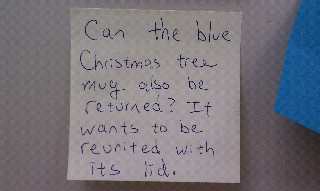 Can the blue
Christmas tree
mug also be
returned? It
wants to be
reunited with
its lid.